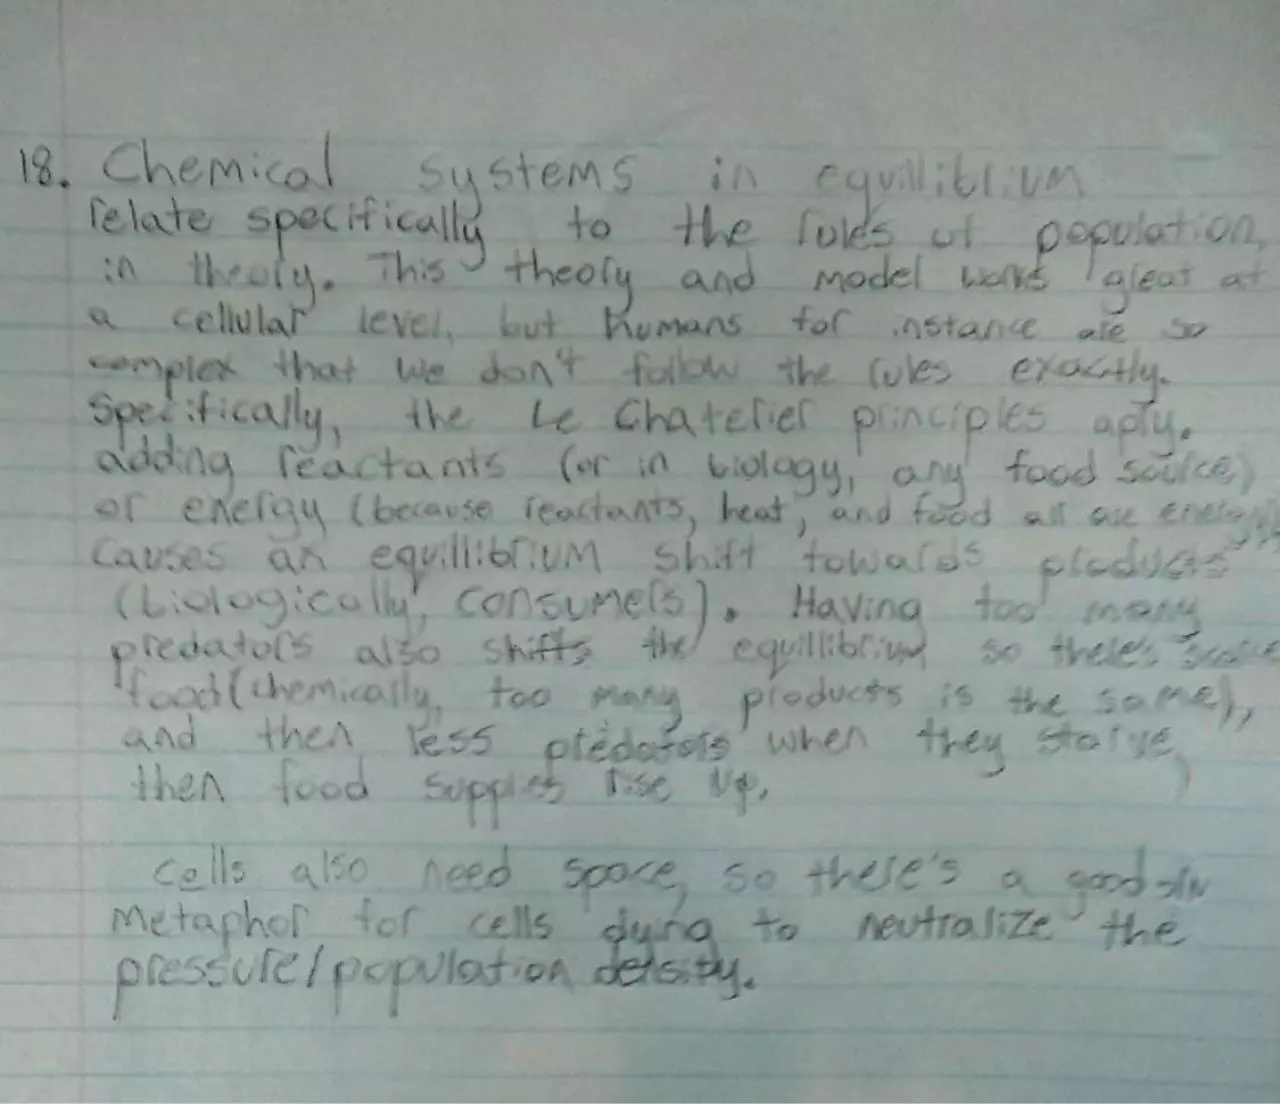 18. Chemical systems in equillibrium
relate specifically to the rules of population,
in theory. This theory and model works great at
a cellular level, but humans for instance are so
complex that we don't follow the rules exactly.
Specifically, the Le Chatelier principles aply.
adding reactants (or in biology, any food source)
or energy (because reactants, heat, and food all are energy)
causes an equillibrium shift towards products
(biologically, consumers). Having too many
predators also shifts the equillibrium so there's scarce
food (chemically, too many products is the same),
and then less predators when they starve,
then food supplies rise up.
Cells also need space, so there's a good
metaphor for cells dying to neutralize the
pressure/population density.